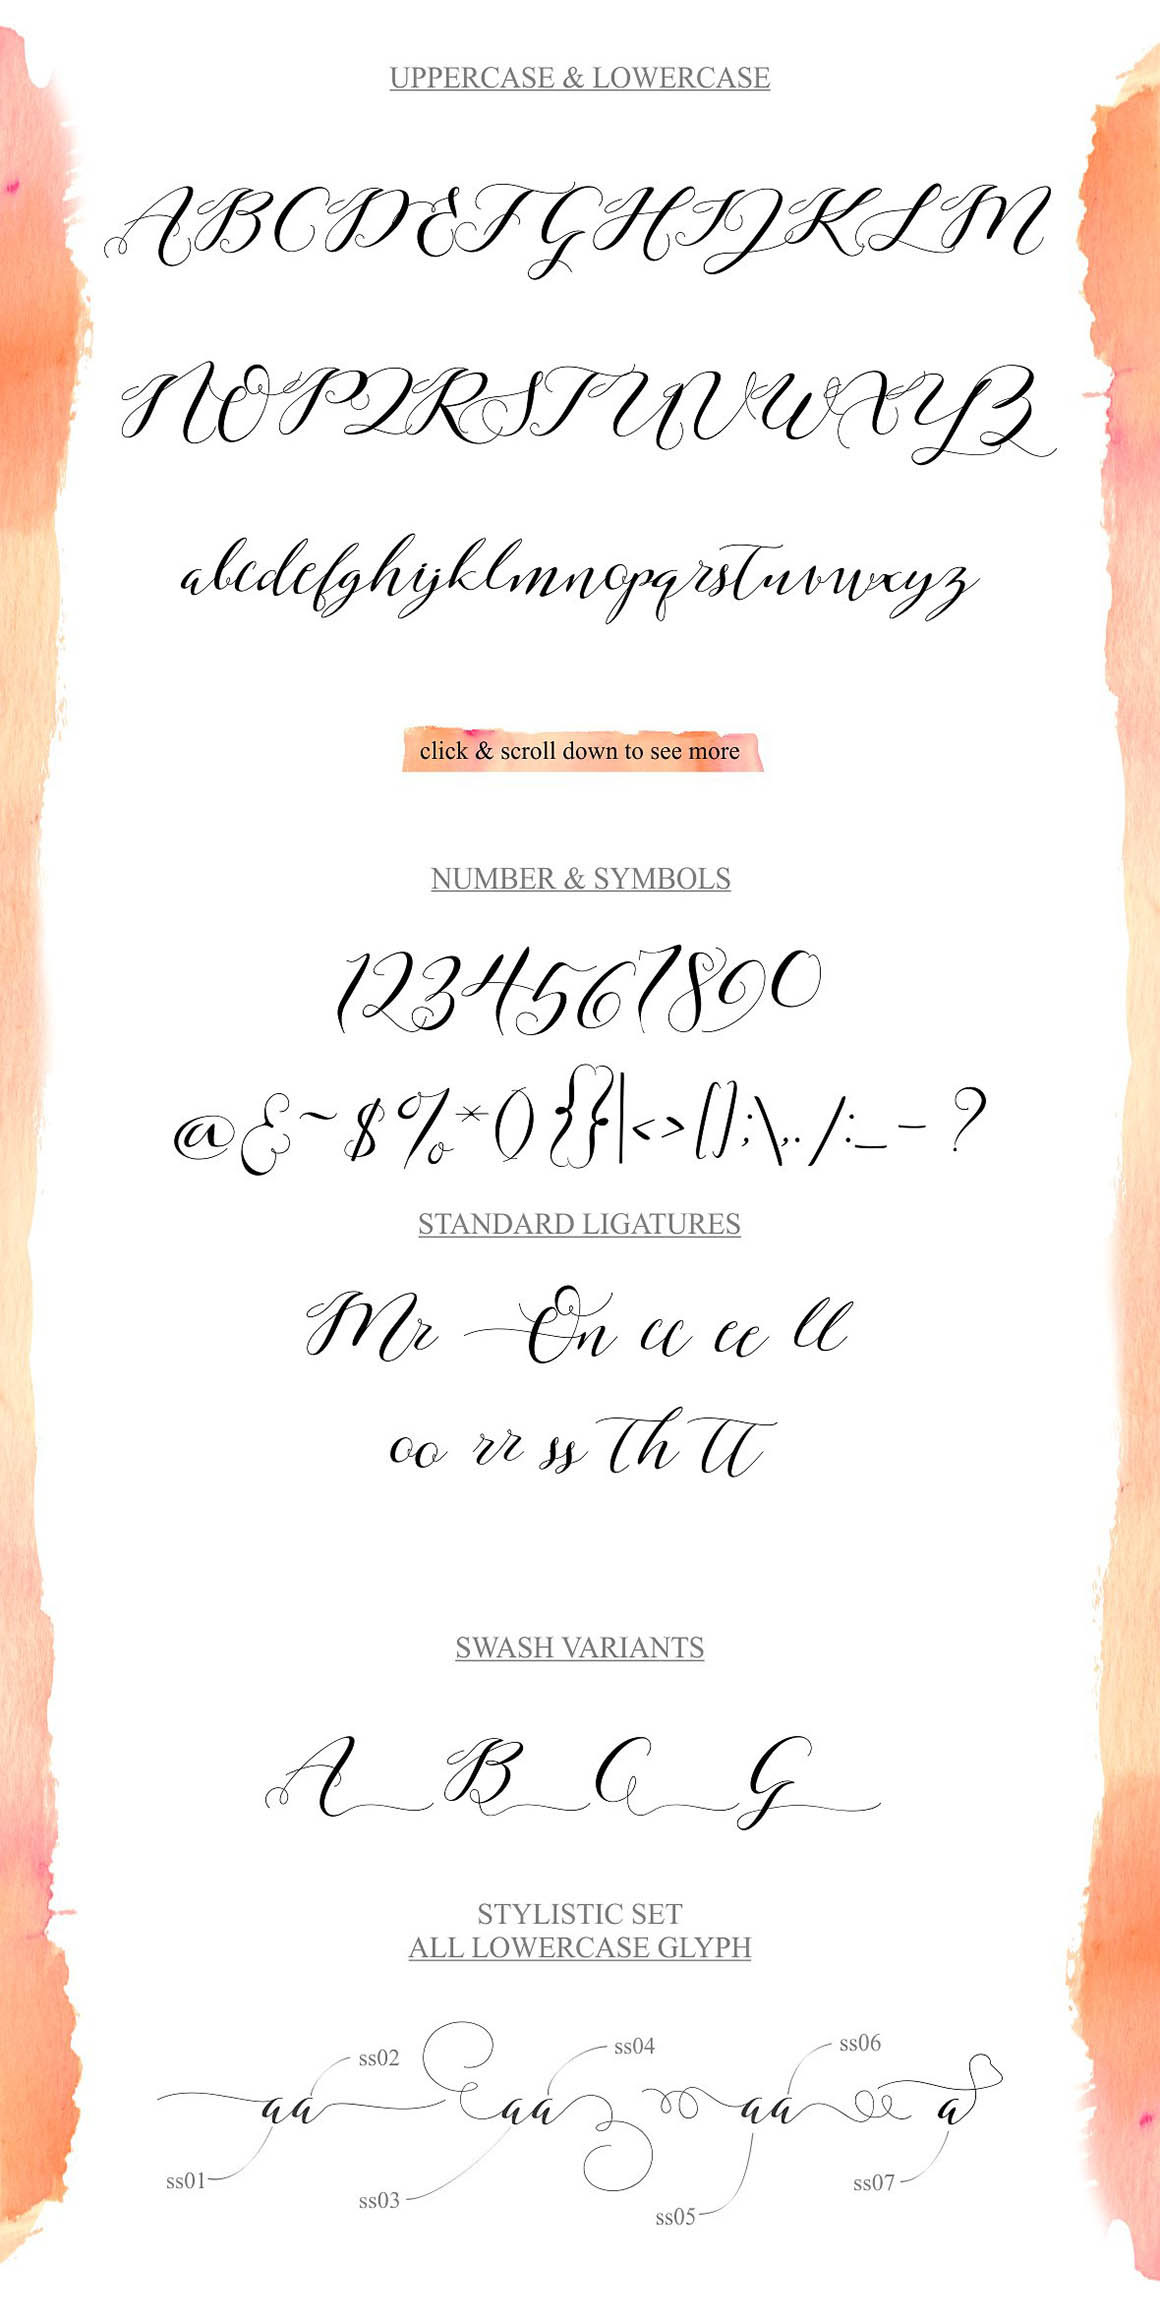 UPPERCASE & LOWERCASE
ABCDEFGHIJKLM
NOPQRSTUVWXYZ
abcdefghijklmnopqrstuvwxyz
click & scroll down to see more
NUMBER & SYMBOLS
1234567890
@&~$%*(){}|<>[];\,./:_-?
STANDARD LIGATURES
Mr On cc ee ll
oo rr ss th tt
SWASH VARIANTS
A B C G
STYLISTIC SET
ALL LOWERCASE GLYPH
ss02 ss04 ss06
aa aa aa a
ss01 ss03 ss05 ss07